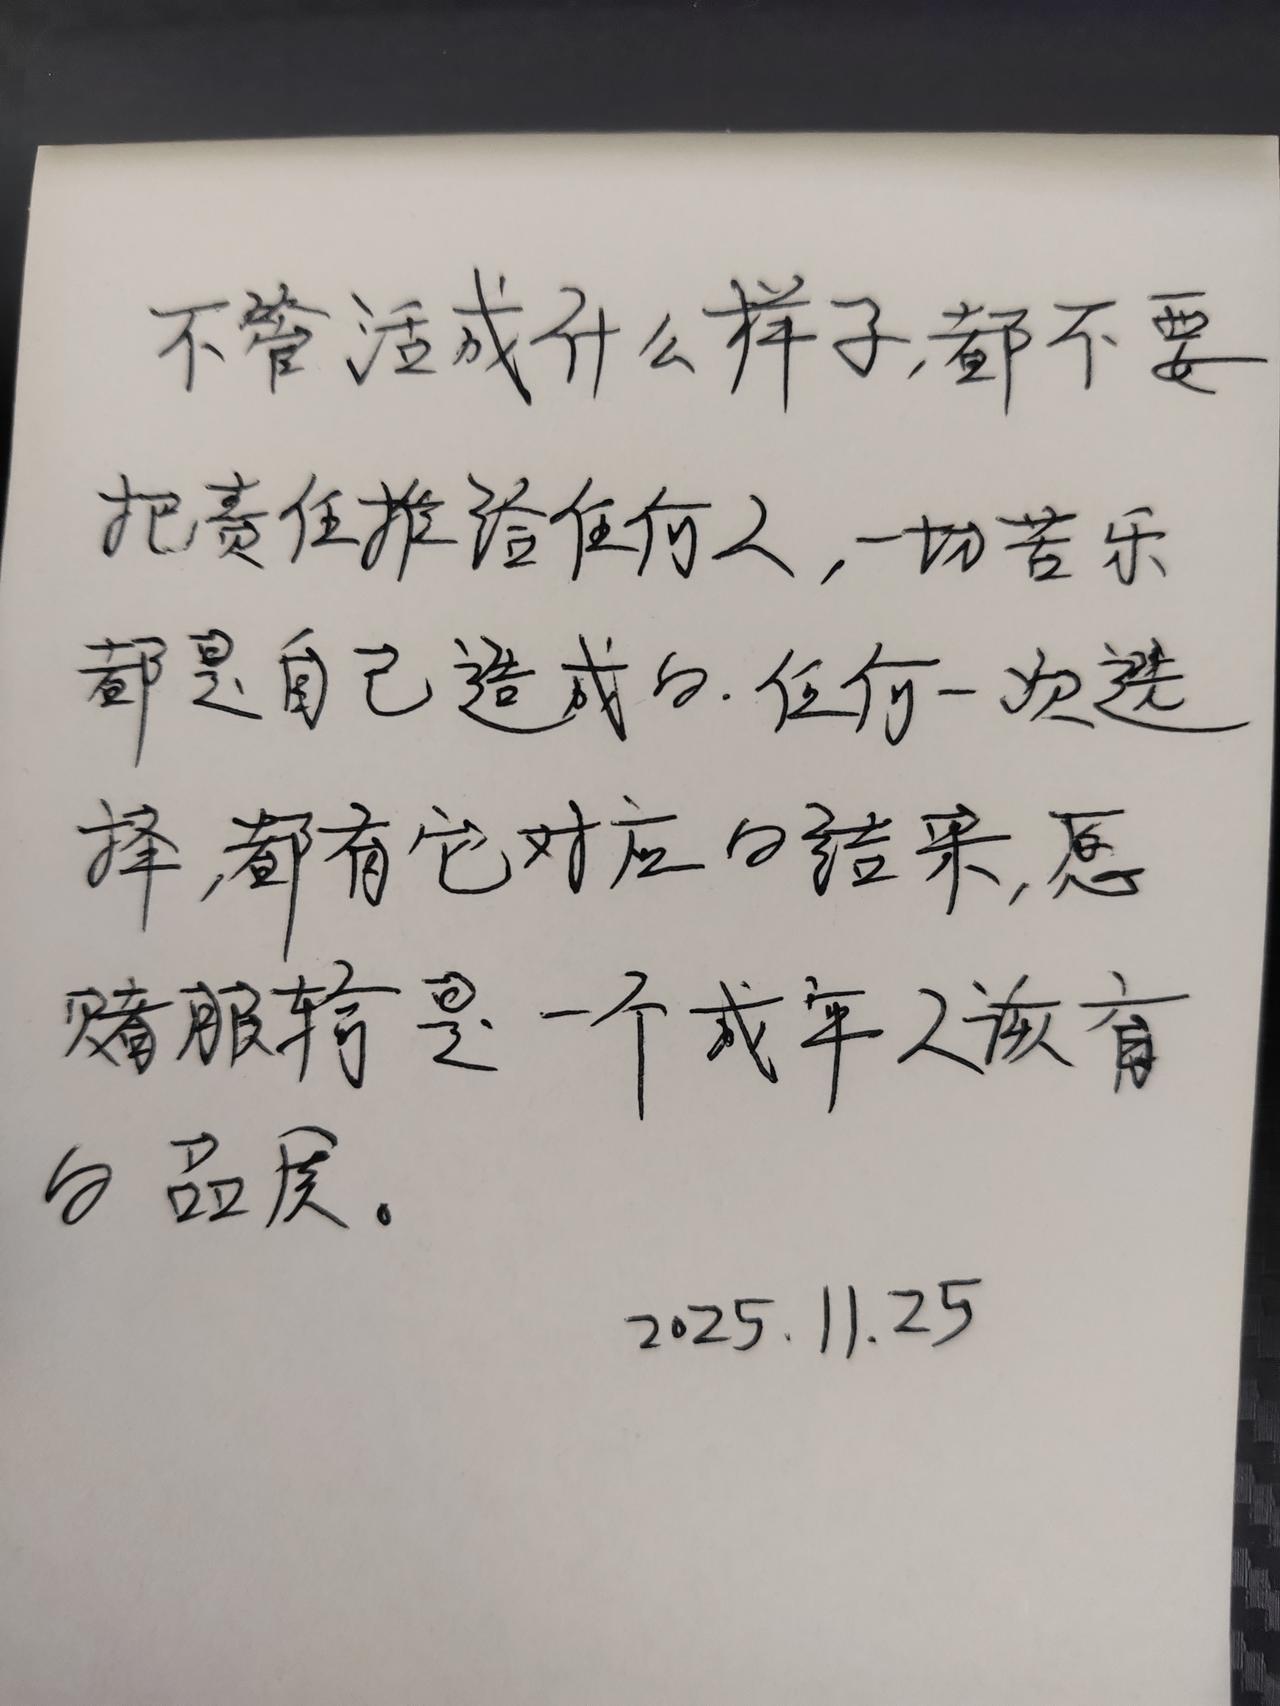 不管活成什么样子,都不要
把责任推给任何人,一切苦乐
都是自己造成的.任何一次选
择,都有它对应的结果,愿
赌服输是一个成年人该有
的品质。
2025.11.25